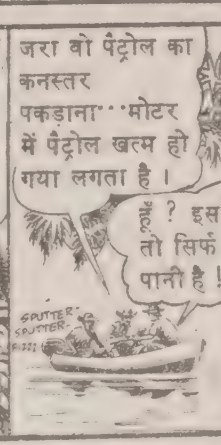 जरा वो पैट्रोल का
कनस्तर
पकड़ाना···मोटर
में पैट्रोल खत्म हो
गया लगता है ।
हैं ? इस
तो सिर्फ
पानी है !
SPUTTER-
SPUTTER-